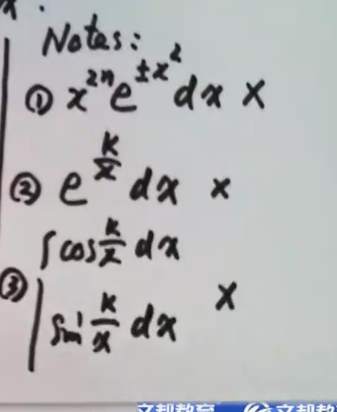 Notes:
① x^{2n} e^{±x^2} dx ×
② e^{\frac{k}{x}} dx ×
∫ cos \frac{k}{x} dx
③ ×
sin \frac{k}{x} dx
文都教育 文都教